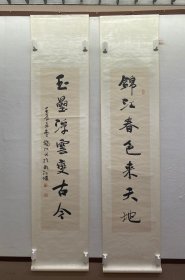 錦江春色来天地
玉壘浮雲變古今